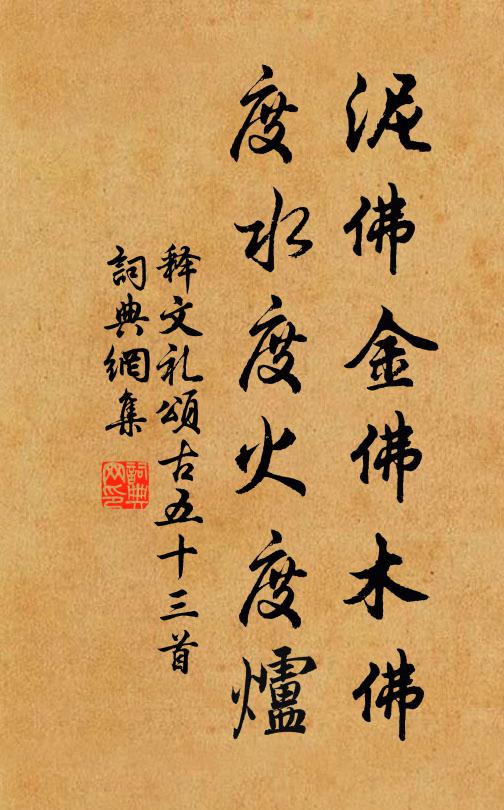 泥佛金佛木佛
度水度火度爐
释文礼頌古五十三首
詞典網集
詞典
网印